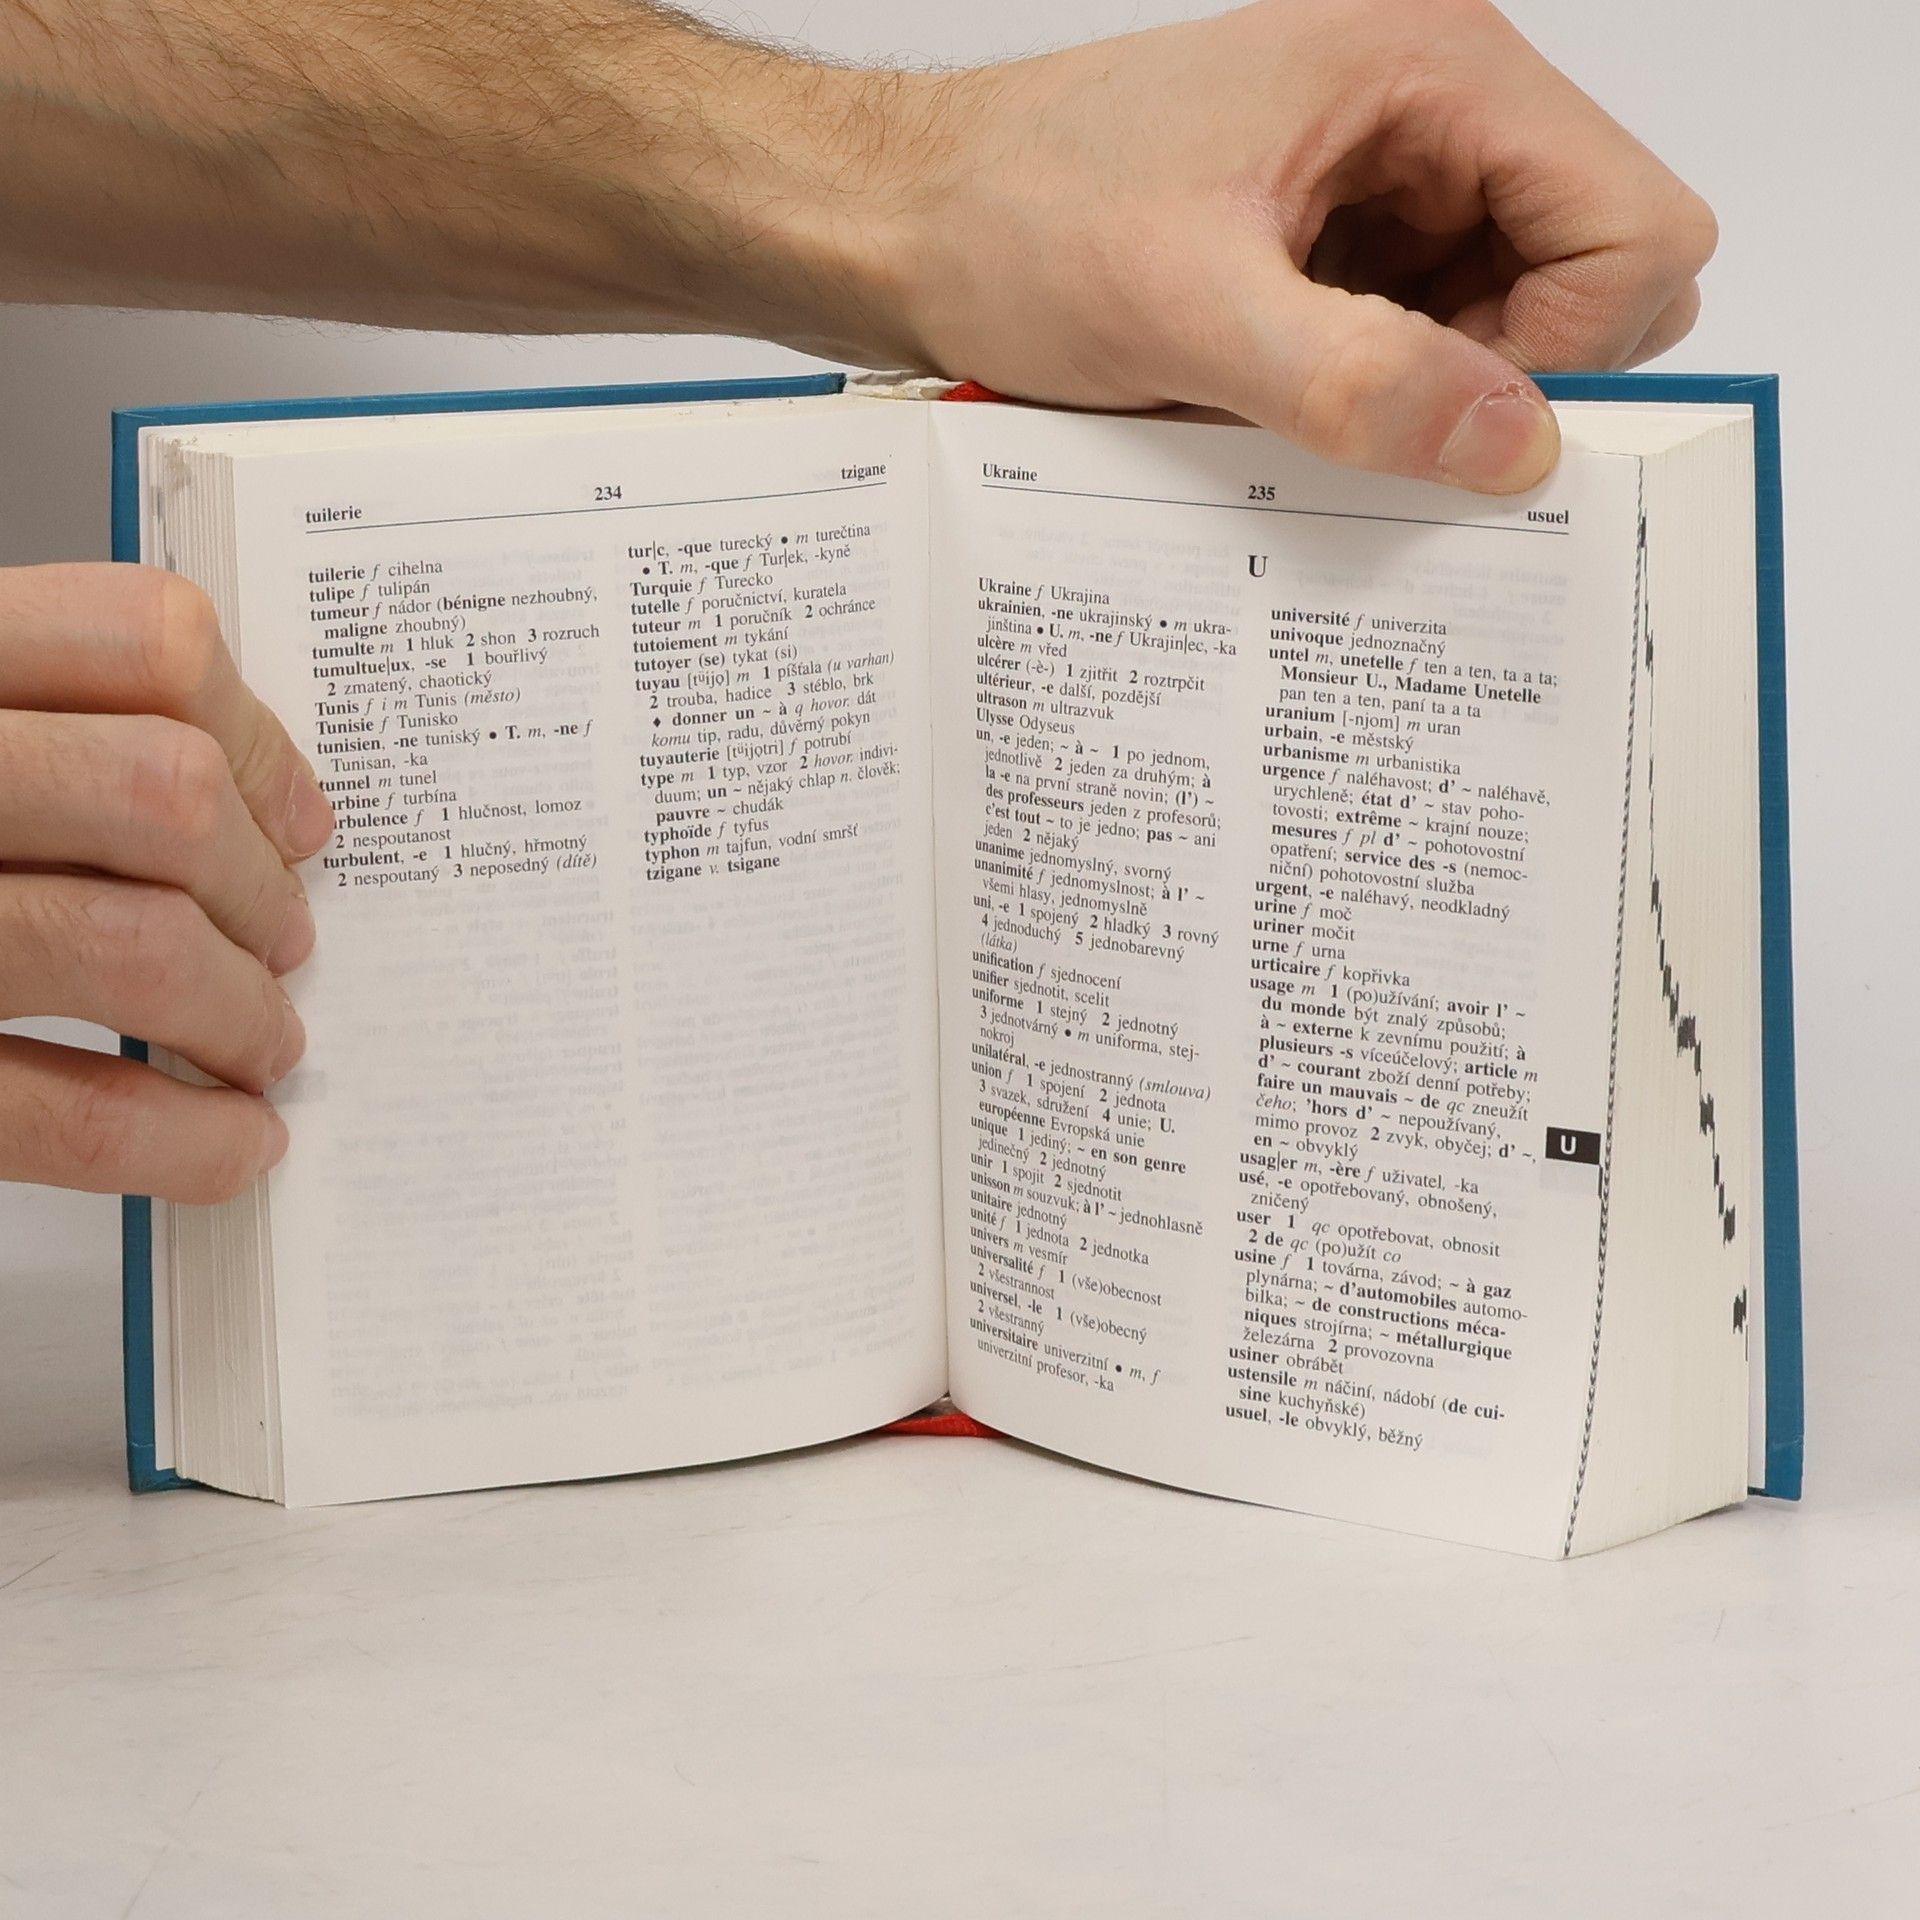 tuilerie
234
tzigane
tuilerie f cihelna
tulipe f tulipán
tumeur f nádor (bénigne nezhoubný,
maligne zhoubný)
tumulte m 1 hluk 2 shon 3 rozruch
tumultue|ux, -se 1 bouřlivý
2 zmatený, chaotický
Tunis f i m Tunis (město)
Tunisie f Tunisko
tunisien, -ne tuniský • T. m, -ne f
Tunisan, -ka
tunnel m tunel
urbine f turbína
rbulence f 1 hlučnost, lomoz
2 nespoutanost
turbulent, -e 1 hlučný, hřmotný
2 nespoutaný 3 neposedný (dítě)
tur|c, -que turecký • m turečtina
• T. m, -que f Tur|ek, -kyně
Turquie f Turecko
tutelle f poručnictví, kuratela
tuteur m 1 poručník 2 ochránce
tutoiement m tykání
tutoyer (se) tykat (si)
tuyau [tüijo] m 1 píšťala (u varhan)
2 trouba, hadice 3 stéblo, brk
♦ donner un ~ à q hovor. dát
komu tip, radu, důvěrný pokyn
tuyauterie [tüijotri] f potrubí
type m 1 typ, vzor 2 hovor. indivi-
duum; un ~ nějaký chlap n. člověk;
pauvre ~ chudák
typhoïde f tyfus
typhon m tajfun, vodní smršť
tzigane v. tsigane
Ukraine
235
usuel
U
Ukraine f Ukrajina
ukrainien, -ne ukrajinský • m ukra-
jinština • U. m, -ne f Ukrajin|ec, -ka
ulcère m vřed
ulcérer (-è-) 1 zjitřit 2 roztrpčit
ultérieur, -e další, pozdější
ultrason m ultrazvuk
Ulysse Odyseus
un, -e jeden; ~ à ~ 1 po jednom,
jednotlivě 2 jeden za druhým; à
la -e na první straně novin; (l') ~
des professeurs jeden z profesorů;
c'est tout ~ to je jedno; pas ~ ani
jeden 2 nějaký
unanime jednomyslný, svorný
unanimité f jednomyslnost; à l' ~
všemi hlasy, jednomyslně
uni, -e 1 spojený 2 hladký 3 rovný
4 jednoduchý 5 jednobarevný
(látka)
unification f sjednocení
unifier sjednotit, scelit
uniforme 1 stejný 2 jednotný
3 jednotvárný • m uniforma, stej-
nokroj
unilatéral, -e jednostranný (smlouva)
union f 1 spojení 2 jednota
3 svazek, sdružení 4 unie; U.
européenne Evropská unie
unique 1 jediný; ~ en son genre
jedinečný 2 jednotný
unir 1 spojit 2 sjednotit
unisson m souzvuk; à l' ~ jednohlasně
unitaire jednotný
unité f 1 jednota 2 jednotka
univers m vesmír
universalité f 1 (vše)obecnost
2 všestrannost
universel, -le 1 (vše)obecný
2 všestranný
universitaire univerzitní • m, f
univerzitní profesor, -ka
université f univerzita
univoque jednoznačný
untel m, unetelle f ten a ten, ta a ta;
Monsieur U., Madame Unetelle
pan ten a ten, paní ta a ta
uranium [-njom] m uran
urbain, -e městský
urbanisme m urbanistika
urgence f naléhavost; d' ~ naléhavě,
urychleně; état d' ~ stav poho-
tovosti; extrême ~ krajní nouze;
mesures f pl d' ~ pohotovostní
opatření; service des -s (nemoc-
niční) pohotovostní služba
urgent, -e naléhavý, neodkladný
urine f moč
uriner močit
urne f urna
urticaire f kopřivka
usage m 1 (po)užívání; avoir l' ~
du monde být znalý způsobů;
à ~ externe k zevnímu použití; à
plusieurs -s víceúčelový; article m
d' ~ courant zboží denní potřeby;
faire un mauvais ~ de qc zneužít
čeho; 'hors d' ~ nepoužívaný,
mimo provoz 2 zvyk, obyčej; d' ~,
en ~ obvyklý
usag|er m, -ère f uživatel, -ka
usé, -e opotřebovaný, obnošený,
zničený
user 1 qc opotřebovat, obnosit
2 de qc (po)užít co
usine f 1 továrna, závod; ~ à gaz
plynárna; ~ d'automobiles automo-
bilka; ~ de constructions méca-
niques strojírna; ~ métallurgique
železárna 2 provozovna
usiner obrábět
ustensile m náčiní, nádobí (de cui-
sine kuchyňské)
usuel, -le obvyklý, běžný
U